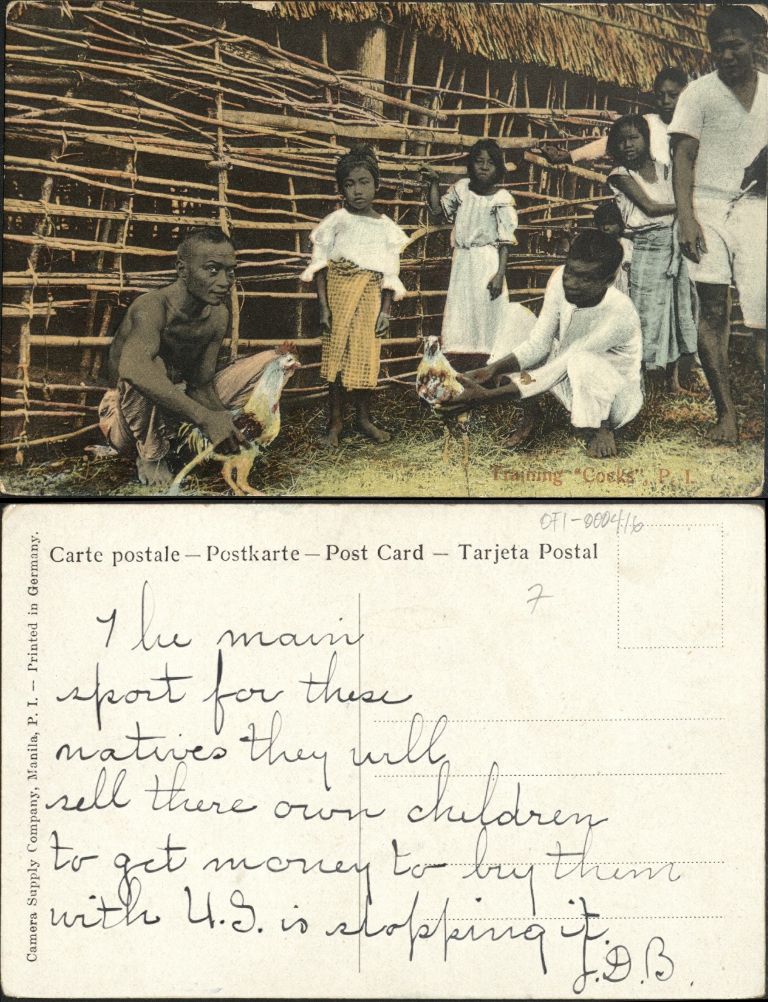 Training "Cocks", P. I.
OFI-0004/16
Carte postale — Postkarte — Post Card — Tarjeta Postal
7
Camera Supply Company, Manila, P. I. — Printed in Germany.
The main
sport for these
natives they will
sell there own children
to get money to buy them
with U.S. is stopping it.
J.D.B.